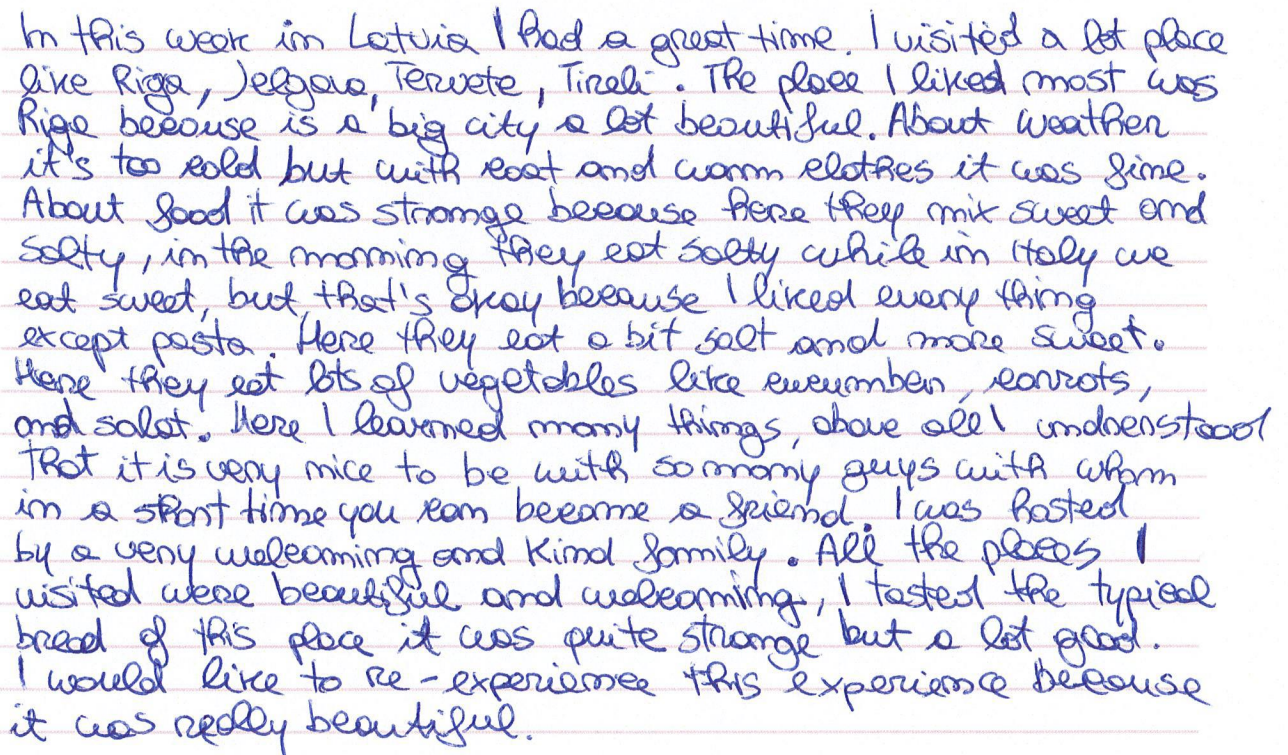 In this week in Latvia I had a great time. I visited a lot place
like Riga, Jelgava, Tervete, Tireli. The place I liked most was
Riga because is a big city a lot beautiful. About weather
it's too cold but with coat and warm clothes it was fine.
About food it was strange because here they mix sweet and
salty, in the morning they eat salty while in Italy we
eat sweet, but that's okay because I liked every thing
except pasta. Here they eat a bit salt and more sweet.
Here they eat lots of vegetables like cucumber, carrots,
and salat. Here I learned many things, above all I undrenstood
that it is very nice to be with so many guys with whom
in a short time you can become a friend. I was hosted
by a very welcoming and kind family. All the places I
visited were beautiful and welcoming, I tasted the typical
bread of this place it was quite strange but a lot good.
I would like to re-experience this experience because
it was really beautiful.